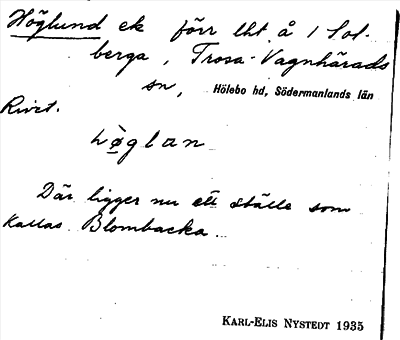 Höglund ek förr lht å 1 Sol-
berga, Trosa-Vagnhärads
sn, Hölebo hd, Södermanlands län
Rivet.
hø̀glan
Där ligger nu ett ställe som
kallas Blombacka.
KARL-ELIS NYSTEDT 1935